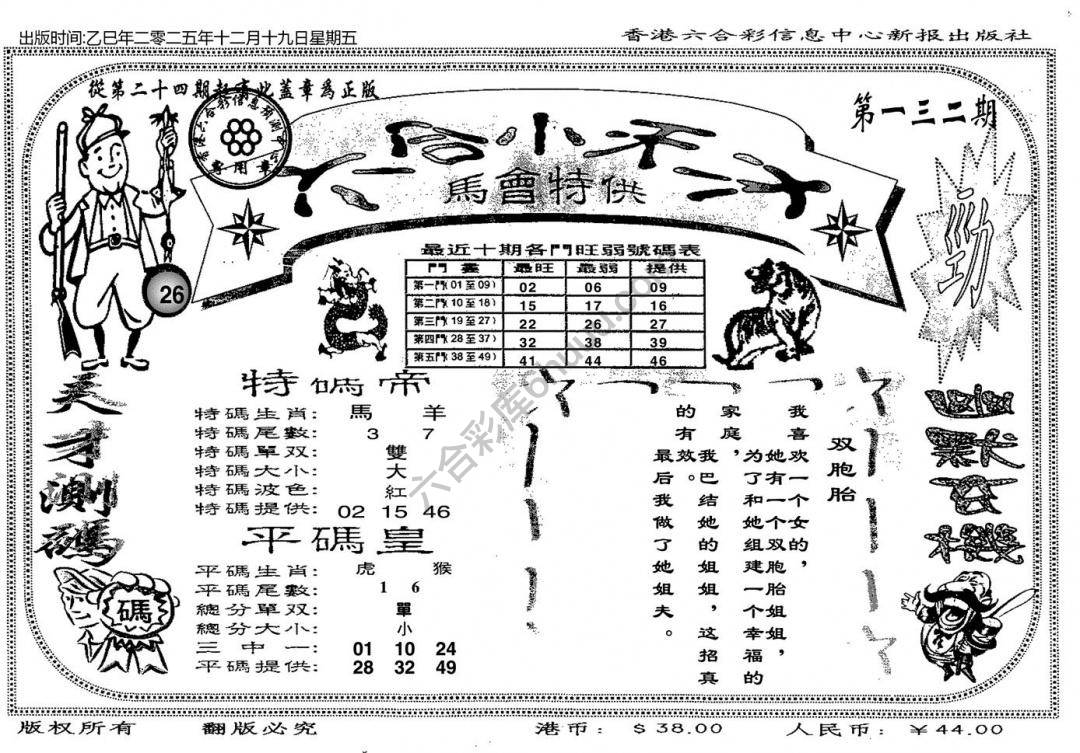 出版时间:乙巳年二零二五年十二月十九日星期五
香港六合彩信息中心新报出版社
從第二十四期起有此蓋章爲正版
第一三二期
專用章
六合小禾二才
馬會特供
勁
26
最近十期各門旺弱號碼表
門 畫 最旺 最弱 提供
第一門(01至09) 02 06 09
第二門(10至18) 15 17 16
第三門(19至27) 22 26 27
第四門(28至37) 32 38 39
第五門(38至49) 41 44 46
天才測碼
碼
特碼帝
特碼生肖: 馬 羊
特碼尾數: 3 7
特碼單双: 雙
特碼大小: 大
特碼波色: 紅
特碼提供: 02 15 46
平碼皇
平碼生肖: 虎 猴
平碼尾數: 1 6
總分單双: 單
總分大小: 小
三中一: 01 10 24
平碼提供: 28 32 49
双胞胎
我喜欢一个女的,
她有一个双胞胎姐姐,
为了和她组建一个幸福的
家庭,
我巴结她的姐姐,这招真
的有效。
最后我做了她姐夫。
六合彩库
版权所有
翻版必究
港币: $38.00
人民币: ¥44.00